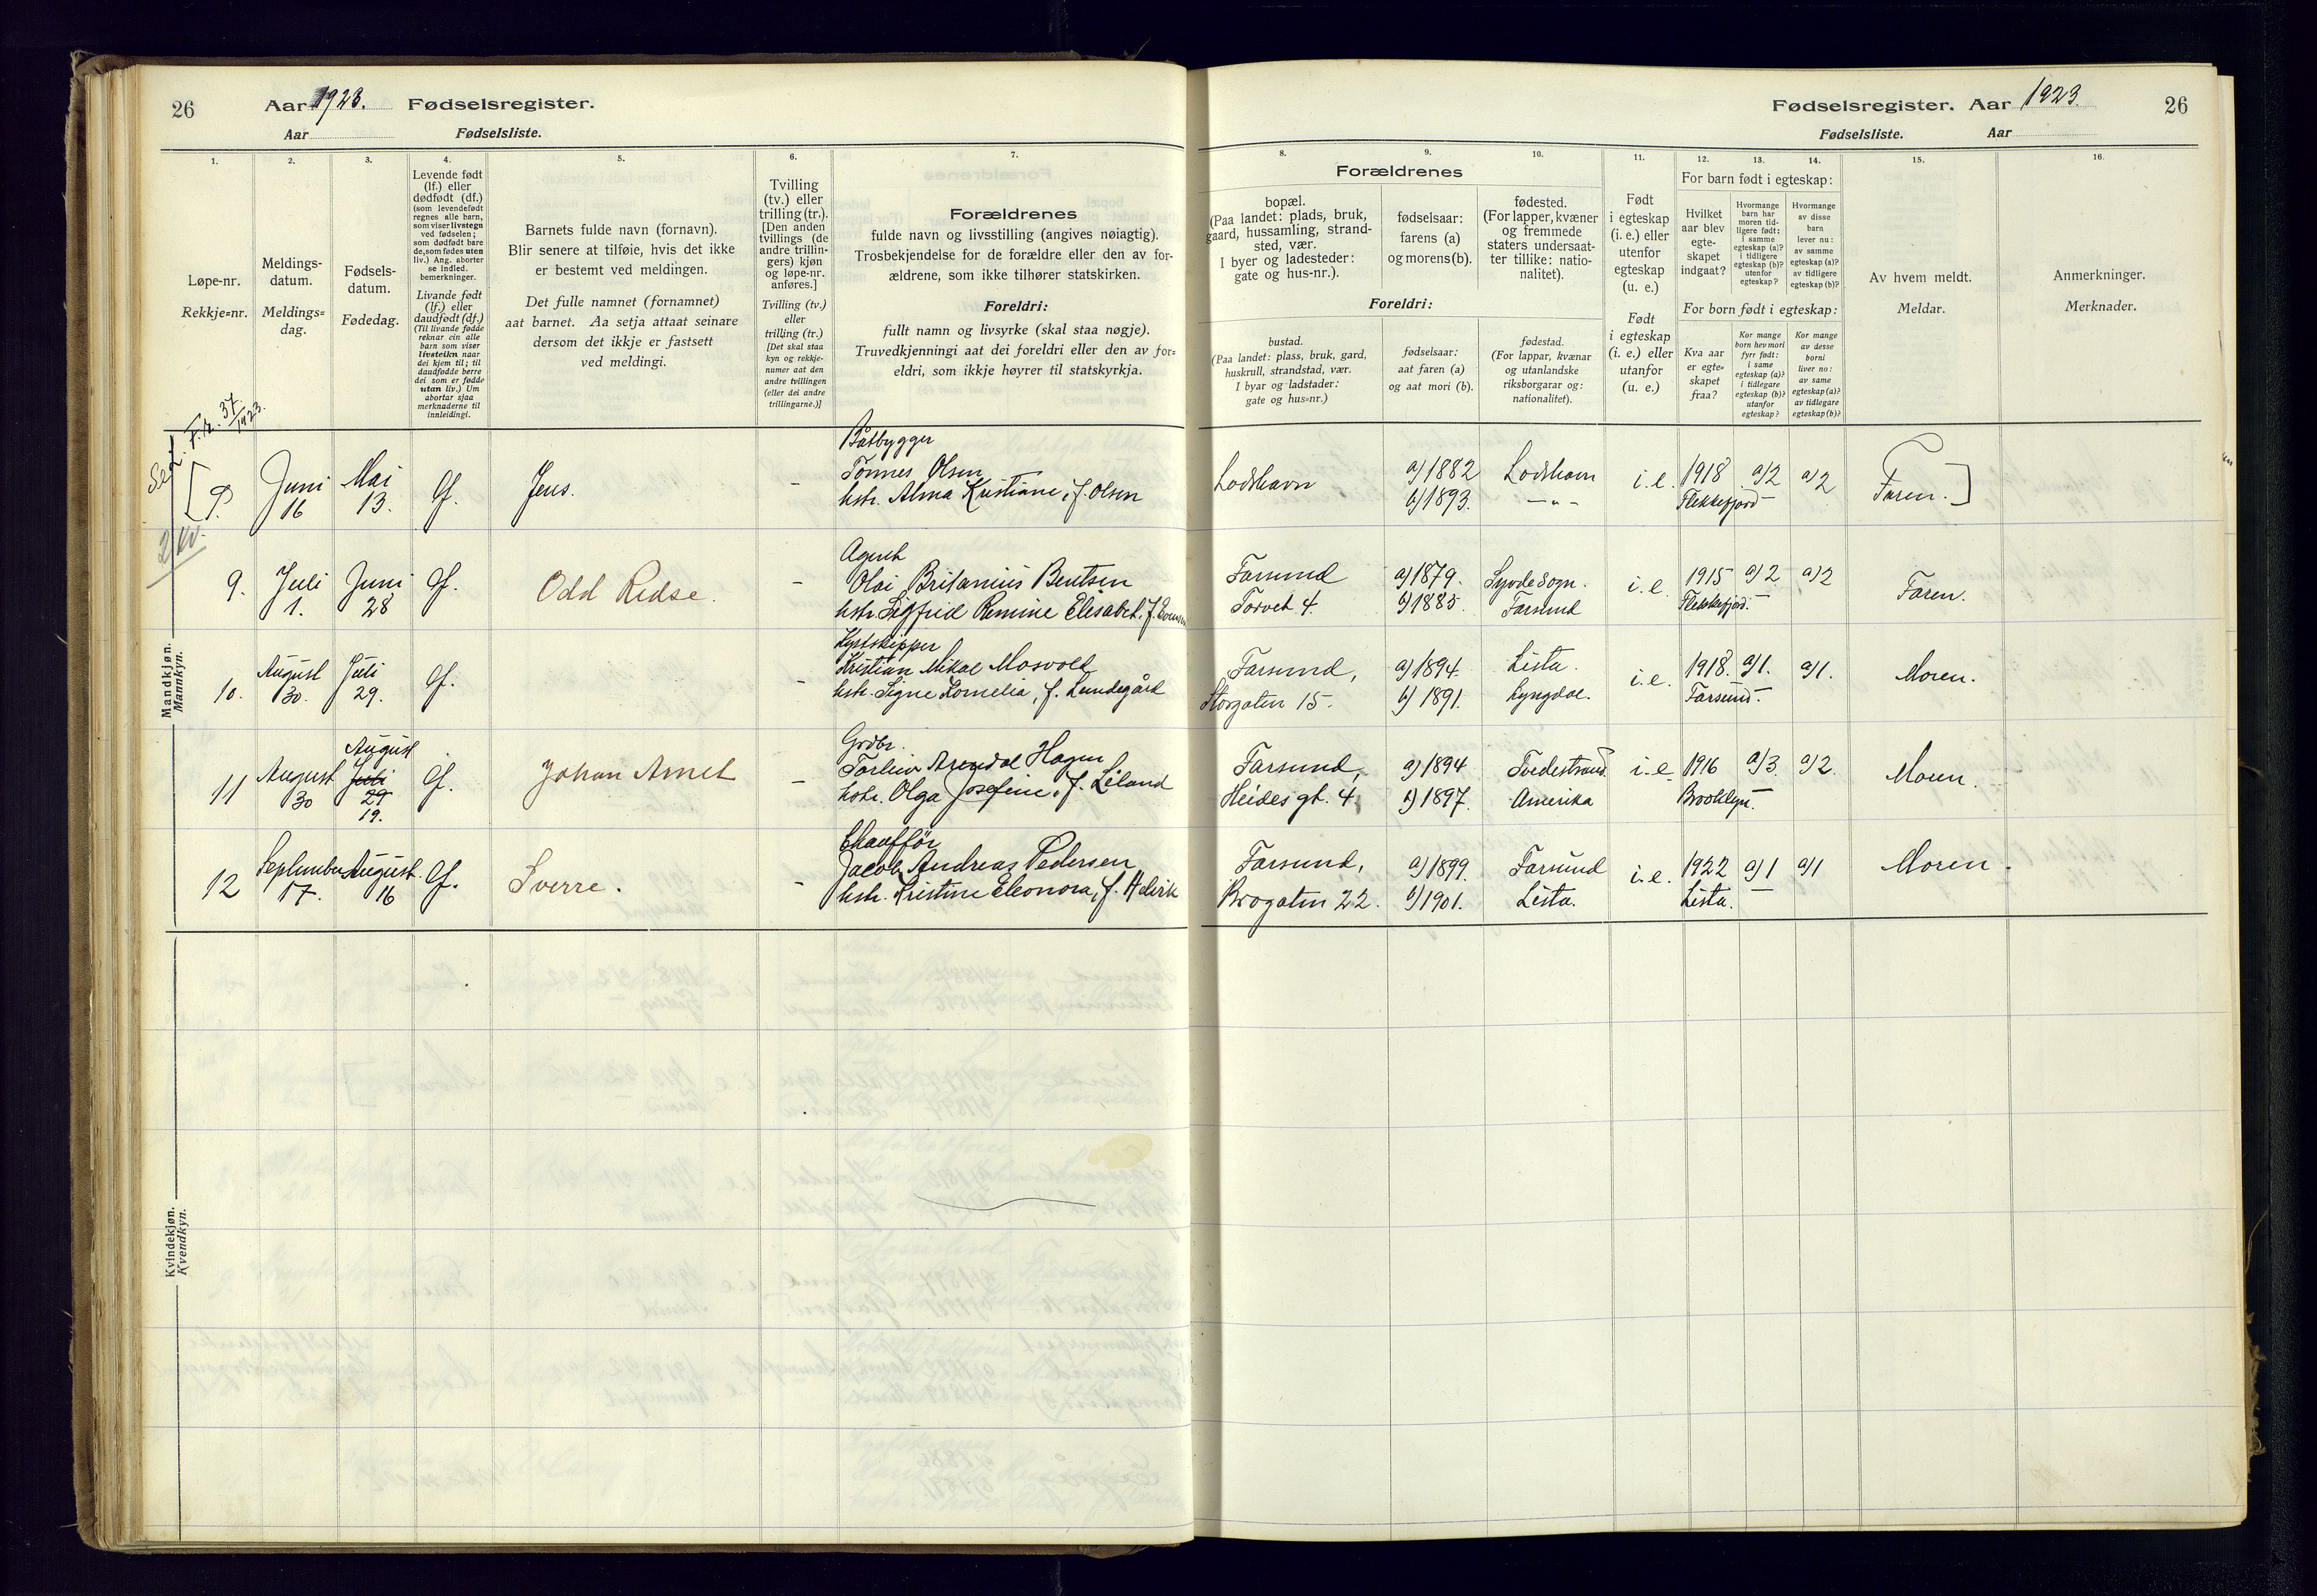 26
Aar 1923. Fødselsregister.
Aar Fødselsliste.
Fødselsregister. Aar 1923.
26
Fødselsliste. Aar
1.
Løpe-nr.
Rekkje=nr.
2.
Meldings-
datum.
Meldings=
dag.
3.
Fødsels-
datum.
Fødedag.
4.
Levende født
(lf.) eller
dødfødt (df.)
(som levendefødt
regnes alle barn,
som viser livstegn
ved fødselen;
som dødfødt bare
de, som fødes uten
liv.) Ang. aborter
se indled.
bemerkninger.
Livande født
(lf.) eller
daudfødt (df.)
(Til livande fødde
reknar ein alle
barn som viser
livsteikn naar
dei kjem til; til
daudfødde berre
dei som er fødde
utan liv.) Um
abortar sjaa
merknaderne til
innleidingi.
5.
Barnets fulde navn (fornavn).
Blir senere at tilføie, hvis det ikke
er bestemt ved meldingen.
Det fulle namnet (fornamnet)
aat barnet. Aa setja attaat seinare
dersom det ikkje er fastsett
ved meldingi.
6.
Tvilling
(tv.) eller
trilling (tr.).
[Den anden
tvillings (de
andre trillin-
gers) kjøn
og løpe-nr.
anføres.]
Tvilling (tv.)
eller
trilling (tr.)
[Det skal staa
kyn og rekkje-
numer aat den
andre tvillingen
(eller dei andre
trillingarne.)]
7.
Forældrenes
fulde navn og livsstilling (angives nøiagtig).
Trosbekjendelse for de forældre eller den av for-
ældrene, som ikke tilhører statskirken.
Foreldri:
fullt namn og livsyrke (skal staa nøgje).
Truvedkjenningi aat dei foreldri eller den av for=
eldri, som ikkje høyrer til statskyrkja.
8.
Forældrenes
bopæl.
(Paa landet: plads, bruk,
gaard, hussamling, strand-
sted, vær.
I byer og ladesteder:
gate og hus-nr.).
9.
fødselsaar:
farens (a)
og morens (b).
10.
fødested.
(For lapper, kvæner
og fremmede
staters undersaat-
ter tillike: natio-
nalitet).
Foreldri:
bustad.
(Paa landet: plass, bruk, gard,
huskrull, strandstad, vær.
I byar og ladstader:
gate og hus=nr.)
fødselsaar:
aat faren (a)
og aat mori (b).
fødestad.
(For lappar, kvænar
og utanlandske
riksborgarar og:
nationalitet).
11.
Født
i egteskap
(i. e.) eller
utenfor
egteskap
(u. e.)
Født
i egteskap
(i. e.) eller
utanfor
(u. e.)
12. 13. 14.
For barn født i egteskap:
Hvilket
aar blev
egte-
skapet
indgaat?
Hvormange
barn har
moren tid-
ligere født:
i samme
egteskap (a)?
i tidligere
egteskap (b)?
utenfor
egteskap?
Hvormange
av disse
barn
lever nu:
av samme
egteskap (a)?
av tidligere
egteskap (b)?
For born født i egteskap:
Kva aar
er egte=
skapet
fraa?
Kor mange
born hev mori
fyrr født:
i same
egteskap (a)?
i tidlegare
egteskap (b)?
utanfor
egteskap?
Kor mange
av desse
borni
liver no:
av same
egteskap (a)?
av tidlegare
egteskap (b)?
15.
Av hvem meldt.
Meldar.
16.
Anmerkninger.
Merknader.
Mandkjøn.
Mannkyn.
Kvindekjøn.
Kvendkyn.
Se F.r. 37/1923.
[9. Juni 16 Mai 13. lf. Jens. -
Båtbygger
Tønnes Olsen
hstr. Alma Kristiane, f. Olsen
Lodshavn a) 1882 Lodshavn i.e. 1918 a/2 a/2 Faren.]
b) 1893. - " - Flekkefjord -
9. Juli 1. Juni 28 lf. Odd Redse. -
Agent
Olai Britanius Bentsen
hstr. Sigfrid Ramine Elisabet, f.
Farsund a) 1879. sogn. i.e. 1915 a/2 a/2 Faren.
Torvet 4. b) 1885. Farsund Flekkefjord. -
10. August 30. Juli 29. lf. -
Kystskipper
Kristian Mikal Mosvold
hstr. Signe Kornelia, f. Lundegård
Farsund, a) 1894. Lista. i.e. 1918. a/1. a/1. Moren.
Storgaten 15. b) 1891. Lyngdal. Farsund. -
11 August 30 August Juli 29 19. lf. Johan Arnet -
Grdbr.
Torleiv Arendal Hagen
hstr. Olga Josefine, f. Liland
Farsund, a) 1894 Tvedestrand. i.e. 1916 a/3. a/2. Moren.
Heides gt. 4. b) 1897. Amerika Brooklyn. -
12 September 17. August. 16 lf. Sverre. -
Chauffør
Jacob Andreas Pedersen
hstr. Kristine Eleonora, f.
Farsund, a) 1899. Farsund i.e. 1922 a/1 a/1 Moren.
Brogaten 22. b) 1901. Lista. Lista. -